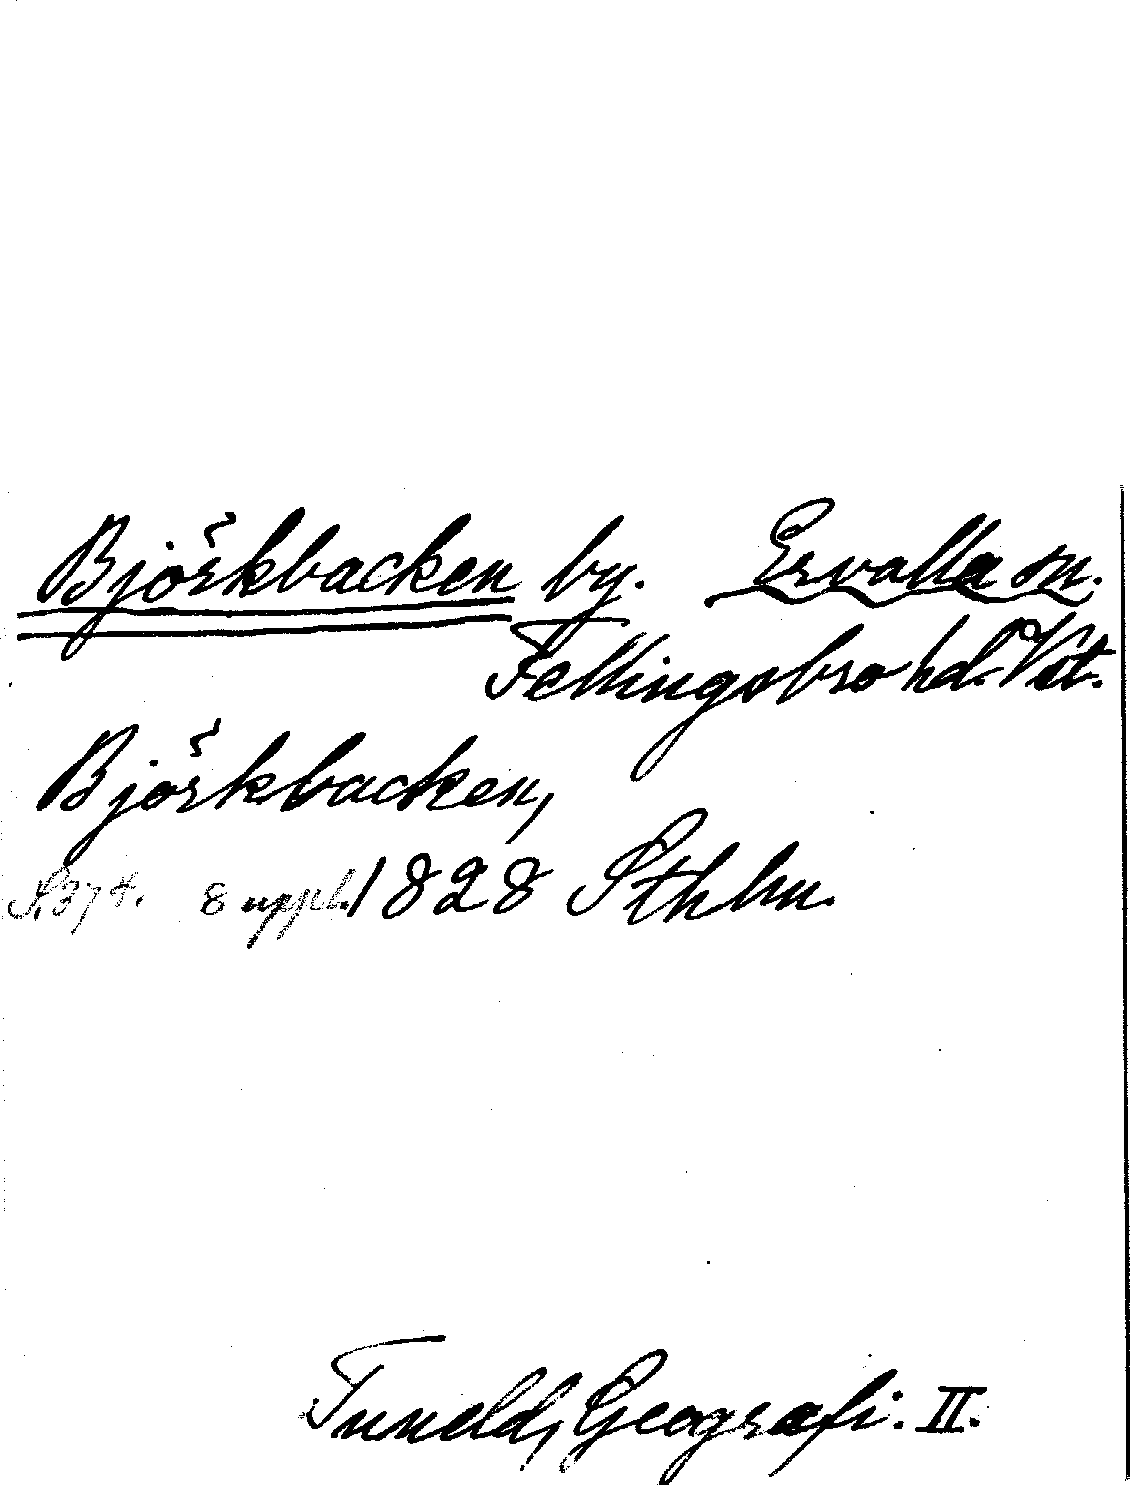 Björkbacken by. Ervalla sn.
Fellingsbro hd. Vst.
Björkbacken,
S. 374. 8 uppl. 1828 Sthlm.
Tuneld, Geografi. II.